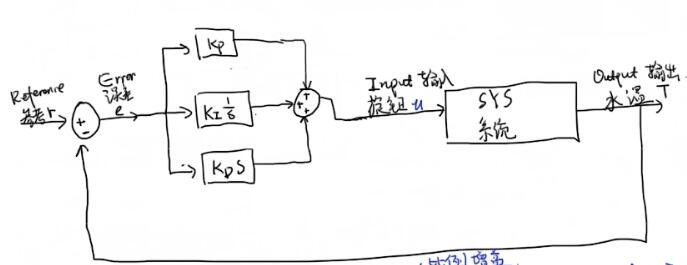 Reference
参考 r
+
-
Error
误差
e
KP
KI 1/s
KD S
+
+
+
Input 输入
旋钮 u
SYS
系统
Output 输出
水温 T
比例增益